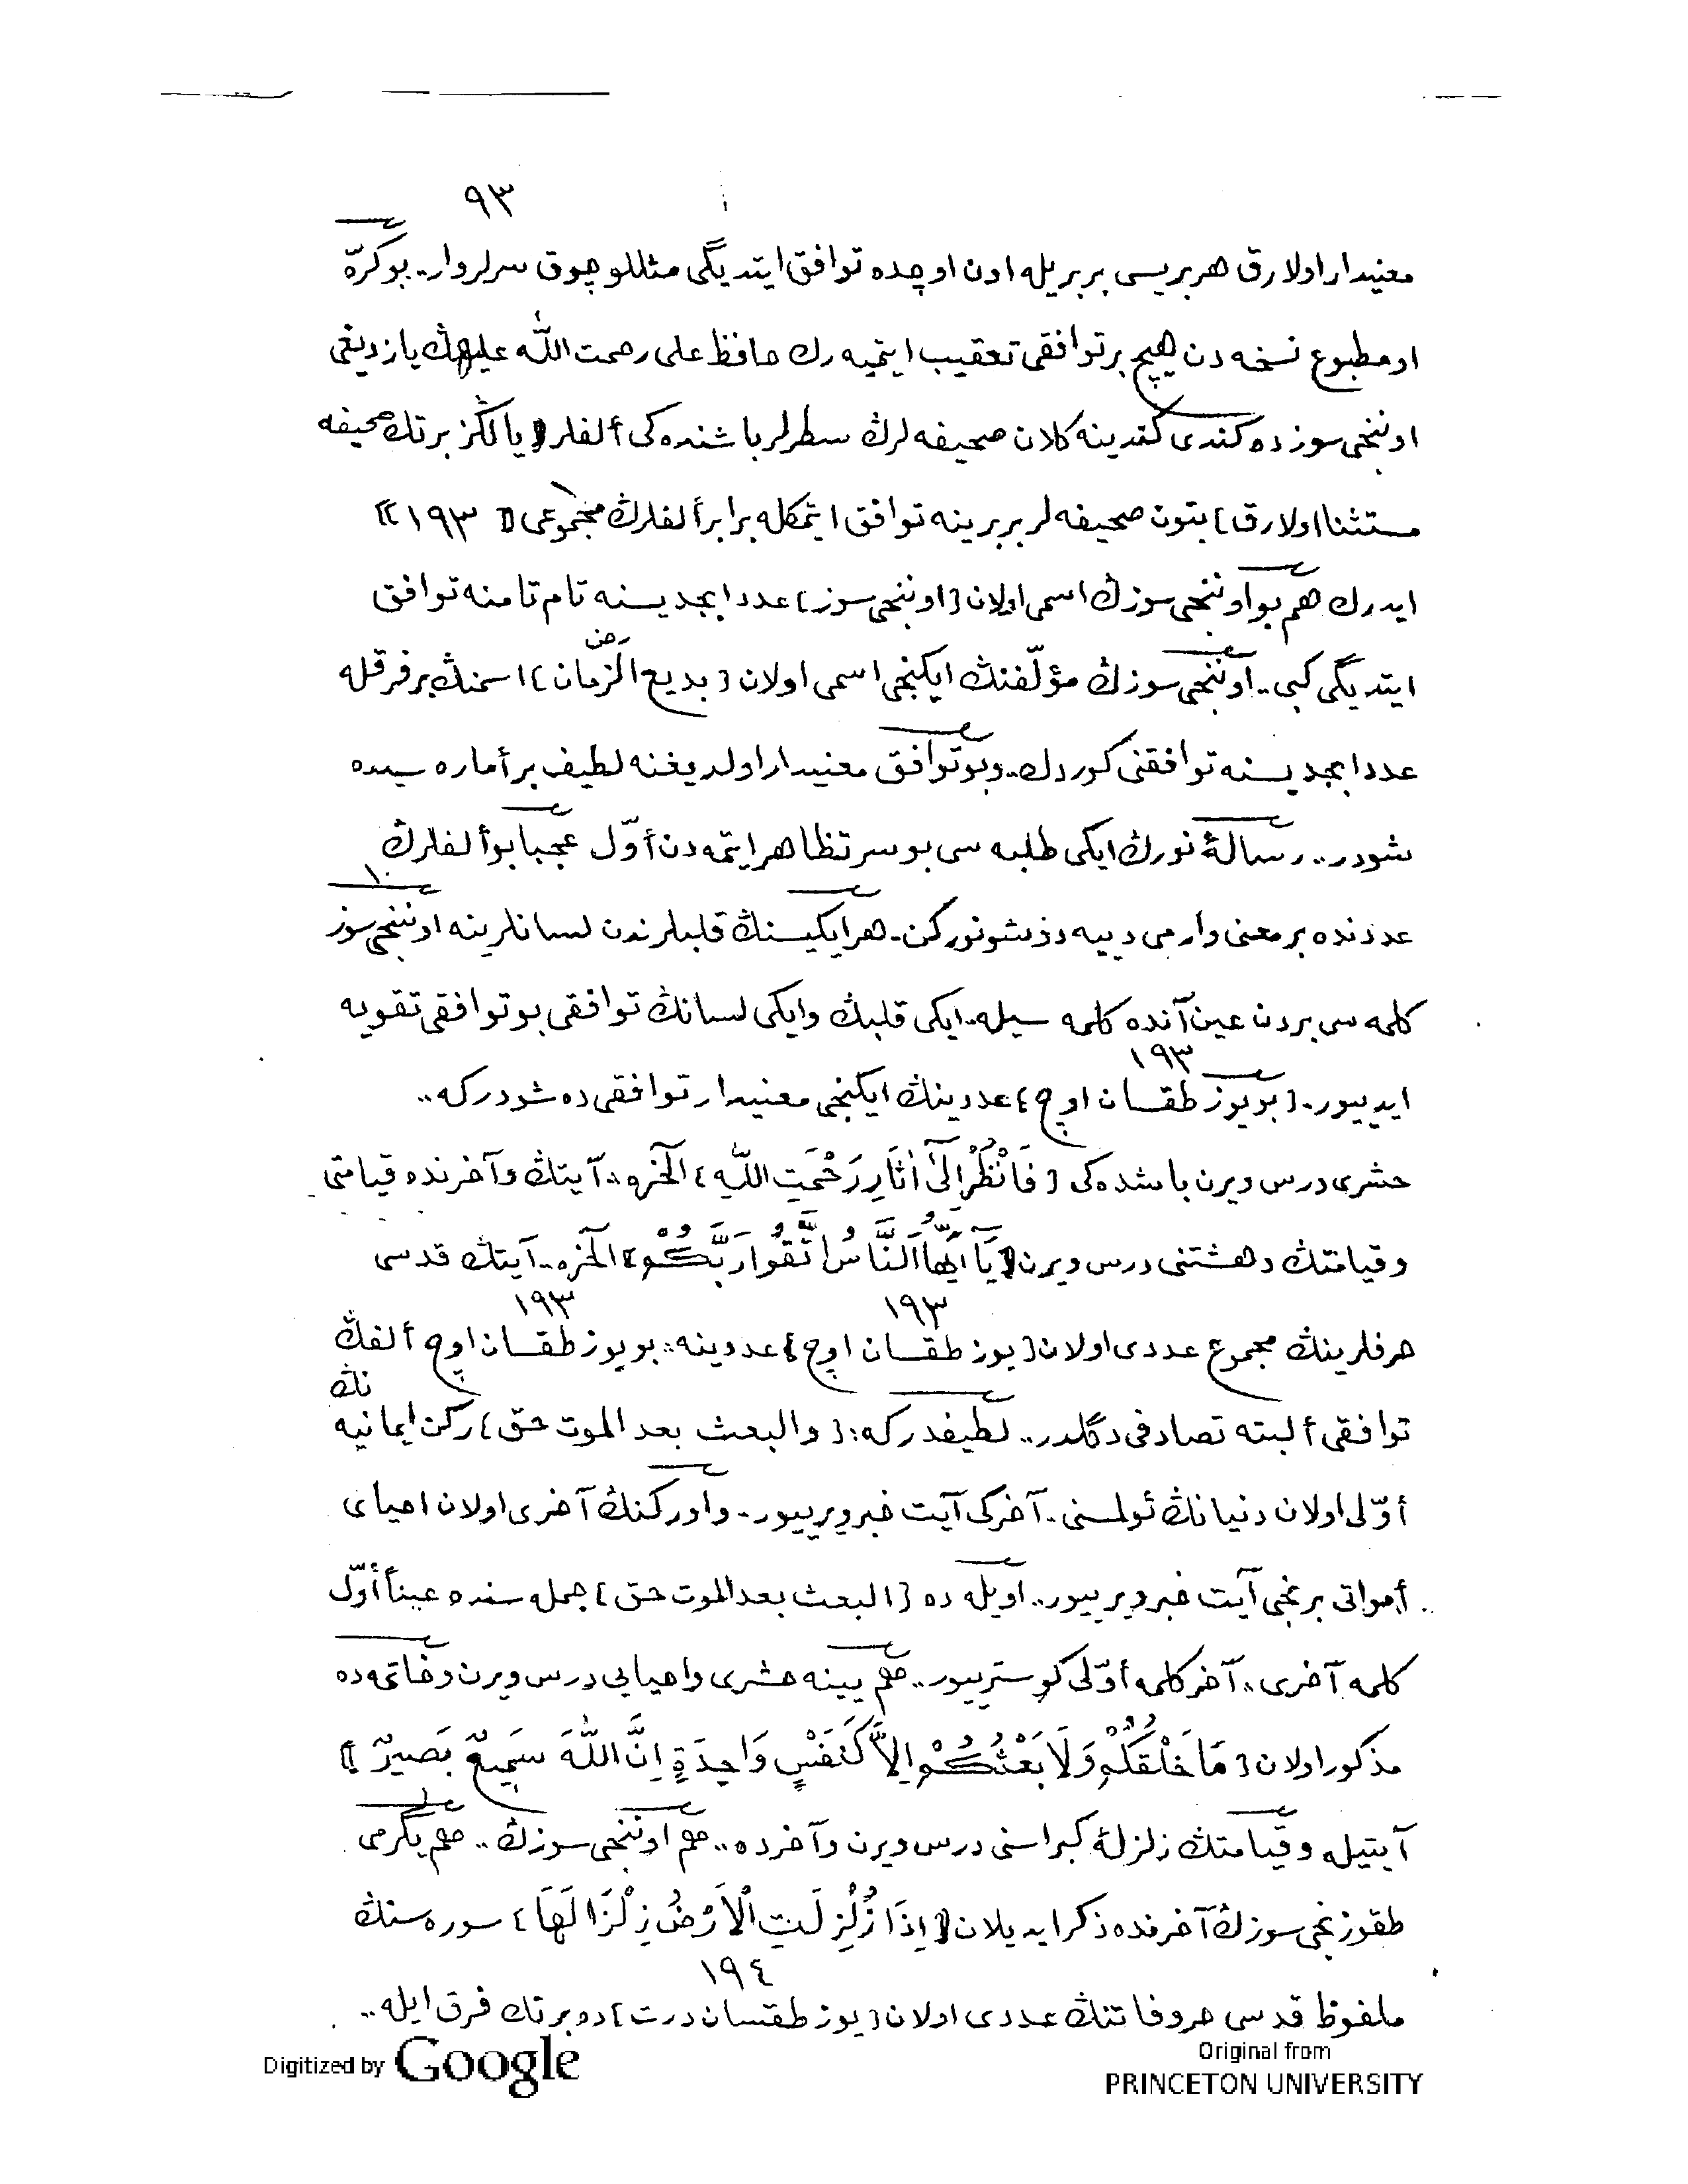 ٩٣
معنیدار اولارق هربریسی بربریله اون اوچده توافق ایتدیگی مثللو چوق سرلر وار.. بو کرّه
او مطبوع نسخه دن هیچ بر توافقی تعقیب ایتمیه رك حافظ علی رحمت اللّٰه علیهڭ یازدیغی
اوننجی سوزده کندی کندینه کلان صحیفه لرڭ سطرلر باشنده کی ألفلر [یالڭز برتك صحیفه
مستثنا اولارق] بتون صحیفه لر بربرینه توافق ایتمکله برابر ألفلرڭ مجموعی [١٩٣]
ایدرك هم بو اوننجی سوزڭ اسمی اولان [اوننجی سوز] عدد ابجدیسنه تام تامنه توافق
ایتدیگی کبی.. اوننجی سوزڭ مؤلّفنڭ ایکنجی اسمی اولان [بدیع الزّمان] رض اسمنڭ بر فرقله
عدد ابجدیسنه توافقنی کوردك.. و بو توافق معنیدار اولدیغنه لطیف بر أماره سیده
شودر.. رسالۀ نورڭ ایکی طلبه سی بو سر تظاهر ایتمه دن أوّل عجبا بو ألفلرڭ
١٠
عددنده بر معنی وارمی دییه دوشونورکن.. هر ایکیسنڭ قلبلرندن لسانلرینه اوننجی سوز
کلمه سی بردن عین آنده کلمه سیله.. ایکی قلبڭ و ایکی لسانڭ توافقی بو توافقی تقویه
١٩٣
ایدییور.. [بو یوز طقسان اوچ] عددینڭ ایکنجی معنیدار توافقی ده شودرکه..
حشری درس ویرن باشده کی [فَانْظُرْ إِلَىٰٓ اٰثَارِ رَحْمَتِ اللّٰهِ] الخره.. آیتڭ و آخرنده قیامتی
و قیامتڭ دهشتنی درس ویرن [يَٓا اَيُّهَا النَّاسُ اتَّقُوا رَبَّكُمْ] الخره.. آیتڭ قدسی
١٩٣ ١٩٣
حرفلرینڭ مجموع عددی اولان [یوز طقسان اوچ] عددینه.. بو یوز طقسان اوچ ألفڭ
توافقی ألبته تصادفی دگلدر.. لطیفدرکه: [والبعث بعد الموت حقّ] رکن ایمانیه نڭ
أوّلی اولان دنیانڭ ئولمسنی.. آخرکی آیت خبر ویرییور.. و او رکنڭ آخری اولان احیای
أمواتی برنجی آیت خبر ویرییور.. اویله ده [البعث بعد الموت حق] جمله سنده عیناً أوّل
کلمه آخری.. آخر کلمه أوّلی کوسترییور.. هم یینه حشری و احیایی درس ویرن و خاتمه ده
مذکور اولان [مَا خَلْقُكُمْ وَلَا بَعْثُكُمْ اِلَّا كَنَفْسٍ وَاحِدَةٍ اِنَّ اللّٰهَ سَمِيعٌ بَصِيرٌ]
آیتیله و قیامتڭ زلزلۀ کبراسنی درس ویرن و آخرده.. هم اوننجی سوزڭ.. هم یگرمی
طقوزنجی سوزڭ آخرنده ذکر ایدیلان [اِذَا زُلْزِلَتِ الْاَرْضُ زِلْزَالَهَا] سوره سنڭ
١٩٤
ملفوظ قدسی حروفاتنڭ عددی اولان [یوز طقسان درت] ده برتك فرق ایله..
Digitized by Google
Original from
PRINCETON UNIVERSITY